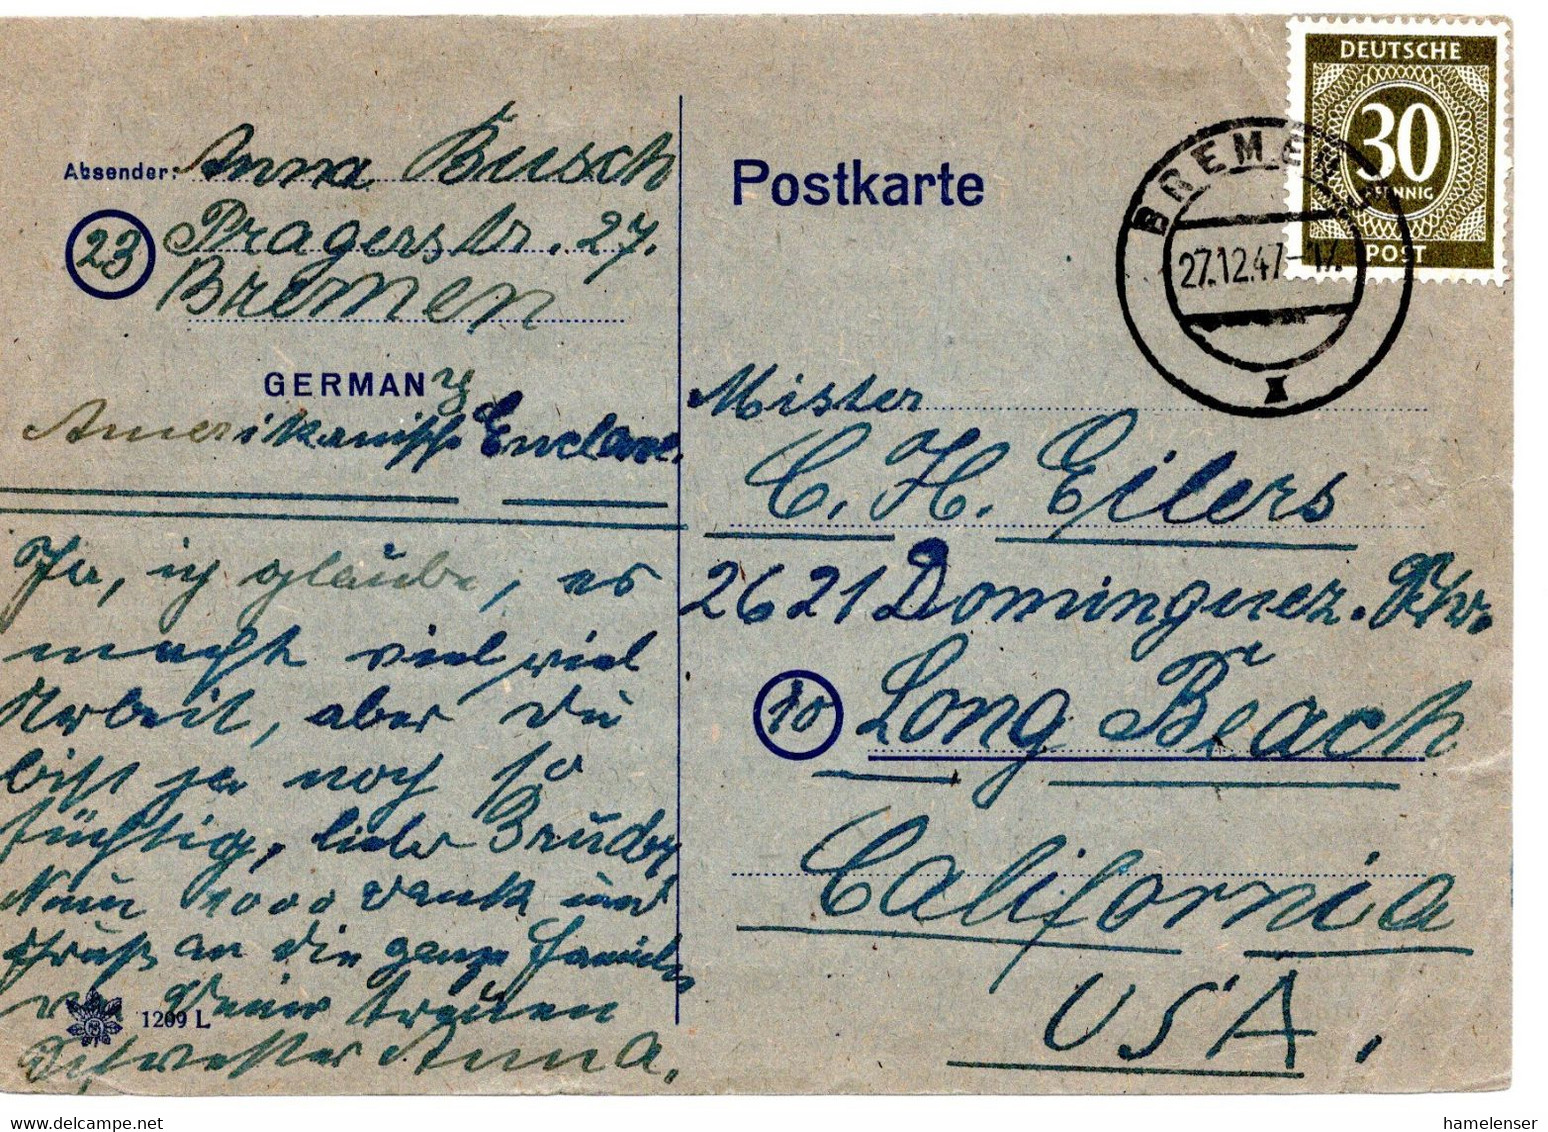 DEUTSCHE
30
PFENNIG
POST
BREMEN
27.12.47-17
Absender: Anna Busch
23 Pragerstr. 27.
Bremen
GERMANy
Amerikanische Enclave.
Postkarte
Mister
C. H. Eilers
2621 Dominguez. Av.
10 Long Beach
California
USA.
Ja, ich glaube, es
macht viel viel
Arbeit, aber du
bist ja noch so
tüchtig, lieber Bruder,
Nun 1000 Dank und
Gruß an die ganze Familie
von Deiner treuen
Schwester Anna.
1209 L
www.delcampe.net
hamelenser